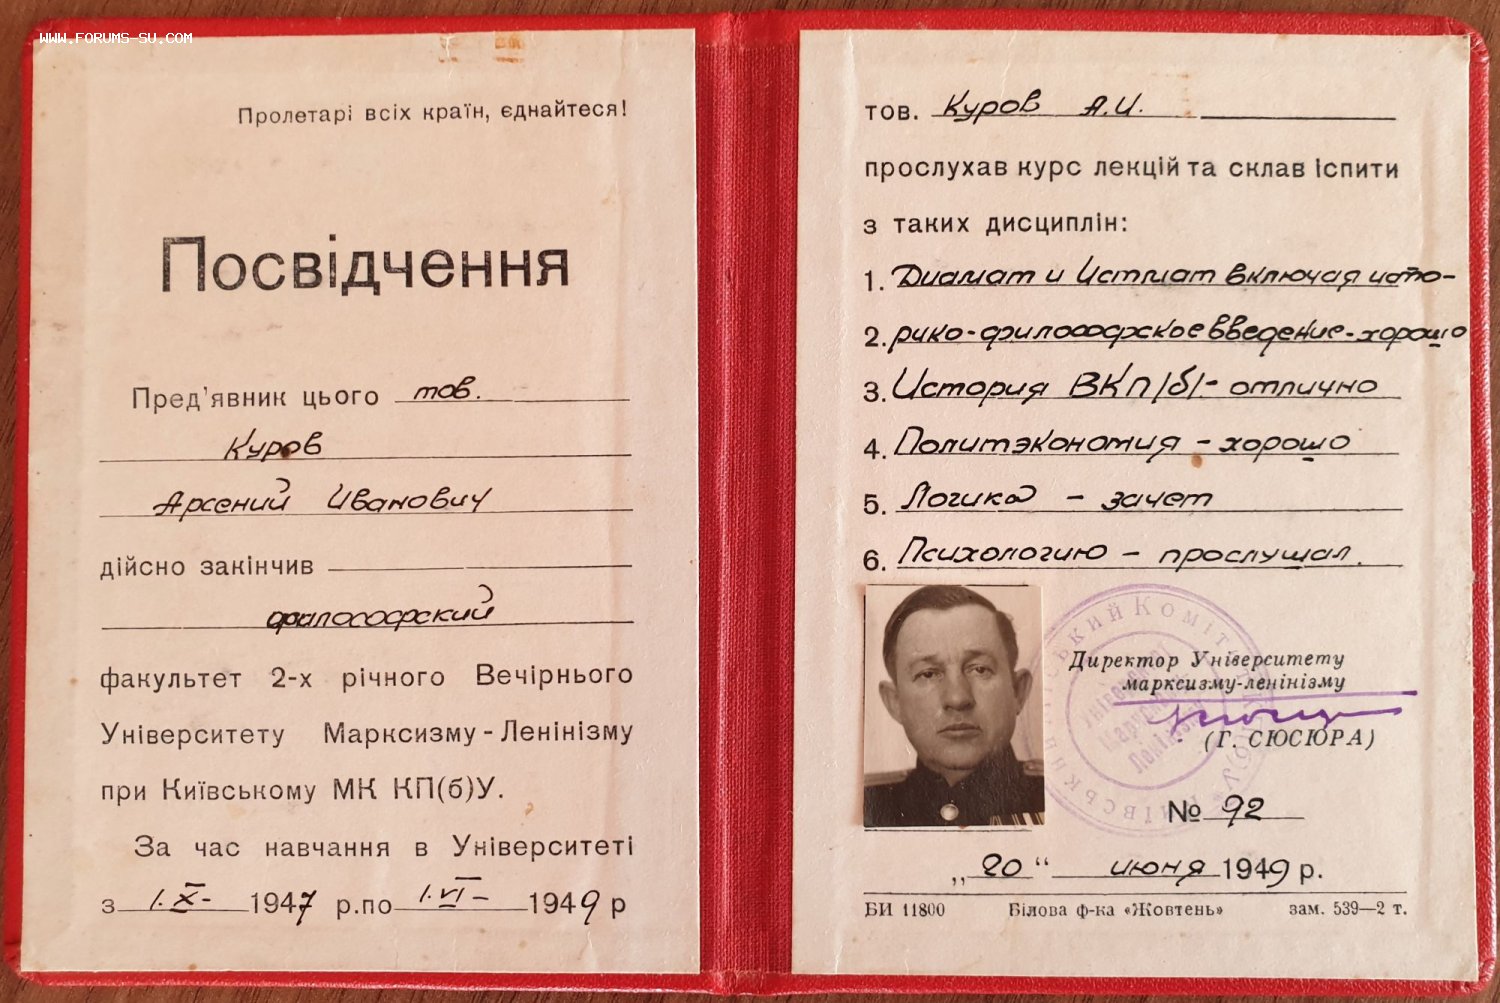 WWW.FORUMS-SU.COM
Пролетарі всіх країн, єднайтеся!
Посвідчення
Пред'явник цього тов.
Куров
Арсений Иванович
дійсно закінчив
философский
факультет 2-х річного Вечірнього
Університету Марксизму-Ленінізму
при Київському МК КП(б)У.
За час навчання в Університеті
з 1.X- 1947 р.по 1.VI- 1949 р
тов. Куров А.И.
прослухав курс лекцій та склав іспити
з таких дисциплін:
1. Диамат и Истмат включая исто-
2. рико-философское введение-хорошо
3. История ВКП/б/- отлично
4. Политэкономия - хорошо
5. Логика - зачет
6. Психологию - прослушал.
Директор Університету
марксизму-ленінізму
(Г. СЮСЮРА)
№ 92
„20“ июня 1949 р.
БИ 11800 Білова ф-ка «Жовтень» зам. 539—2 т.